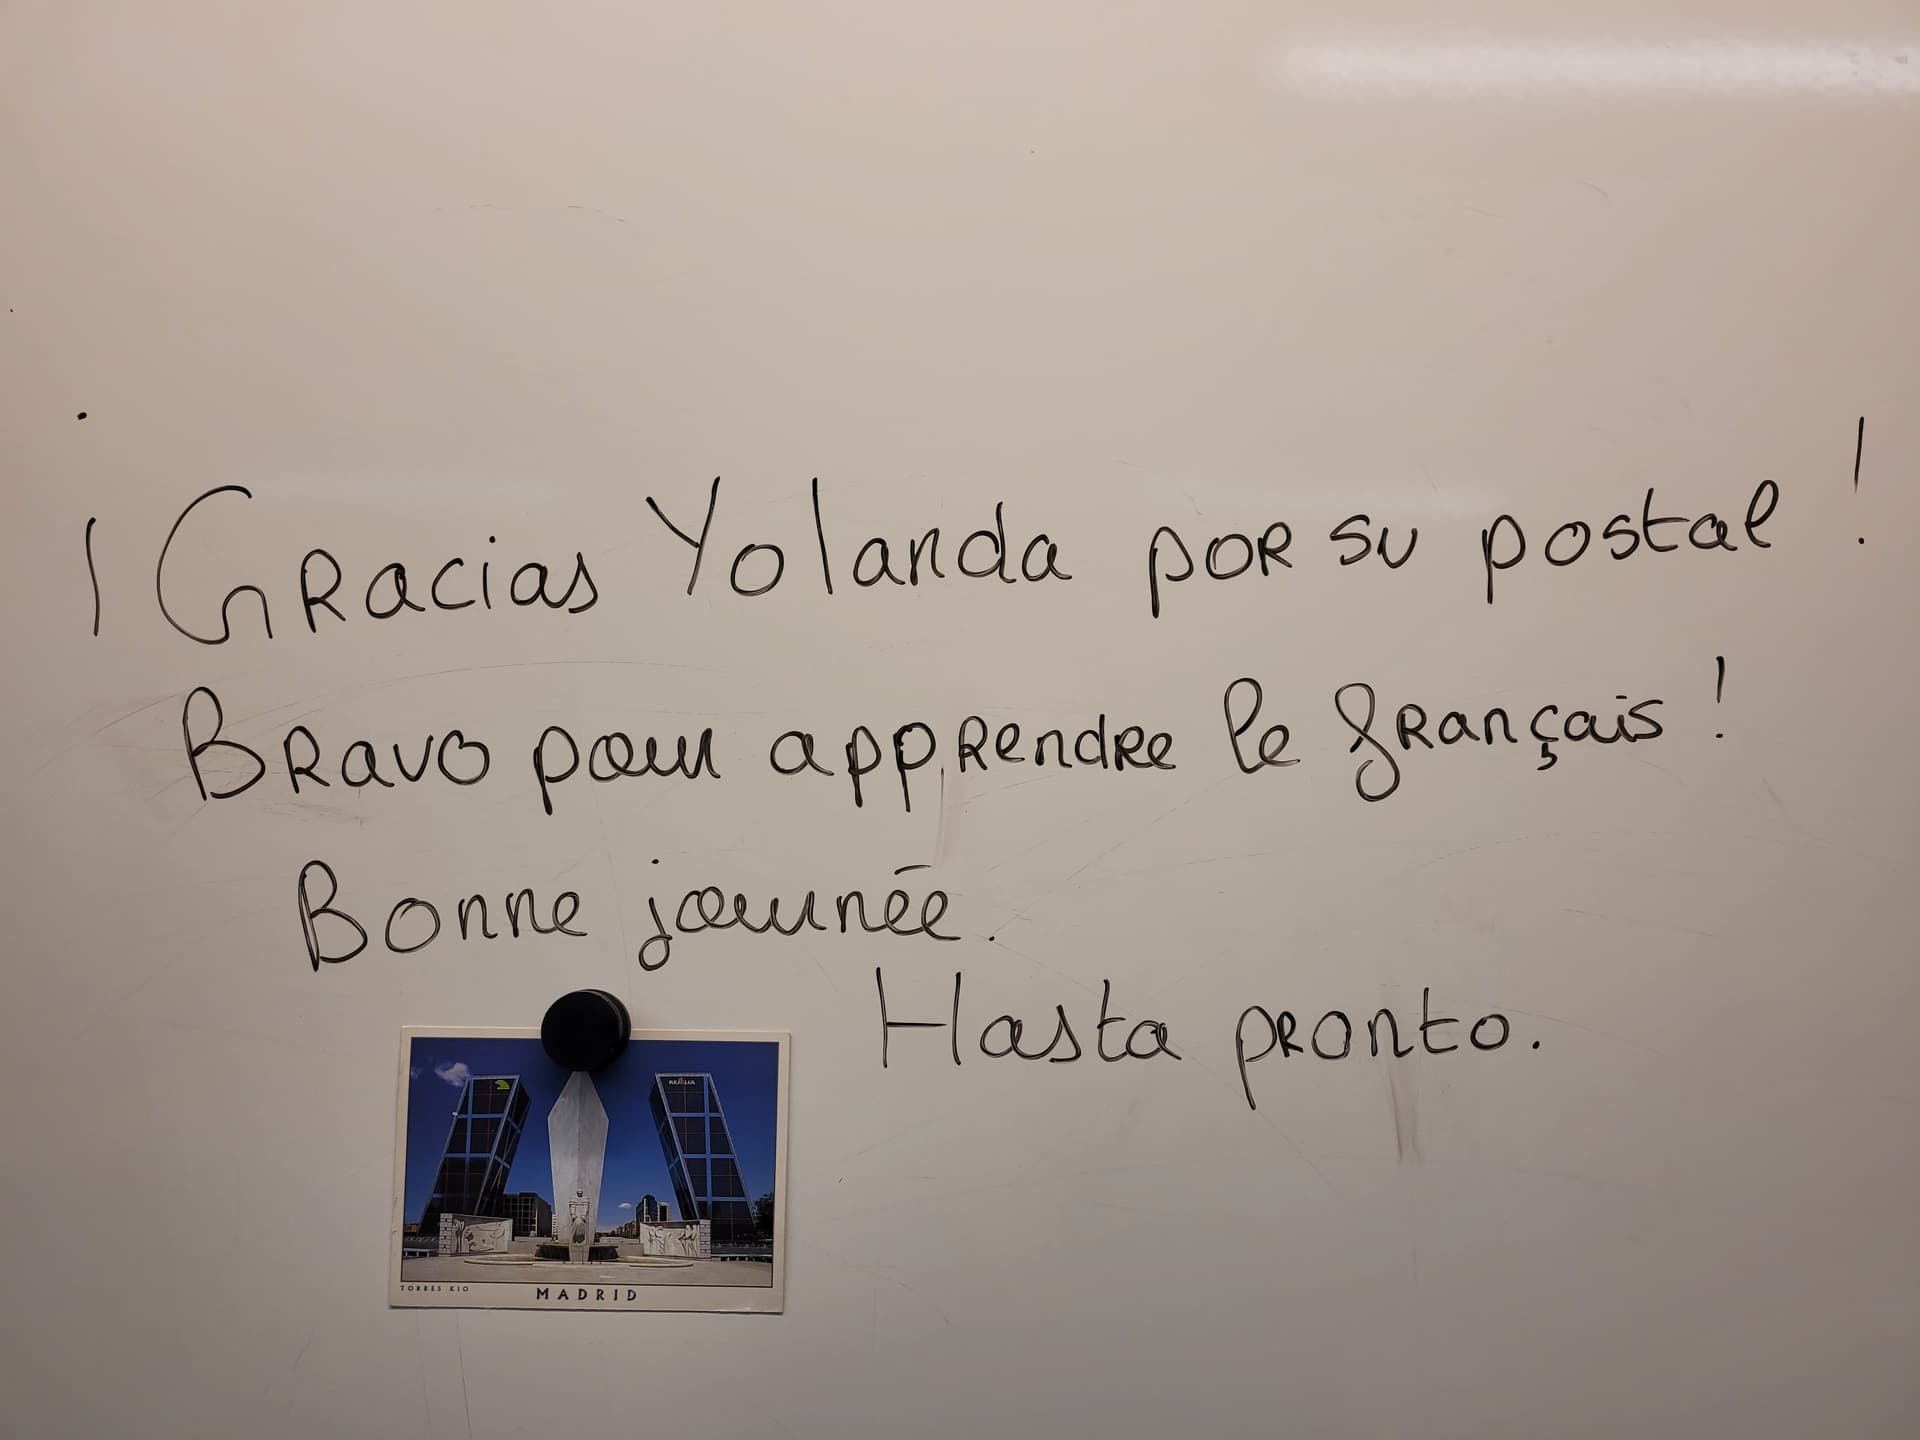 ¡Gracias Yolanda por su postal !
Bravo pour apprendre le français !
Bonne journée.
Hasta pronto.
REALIA
TORRES KIO
MADRID